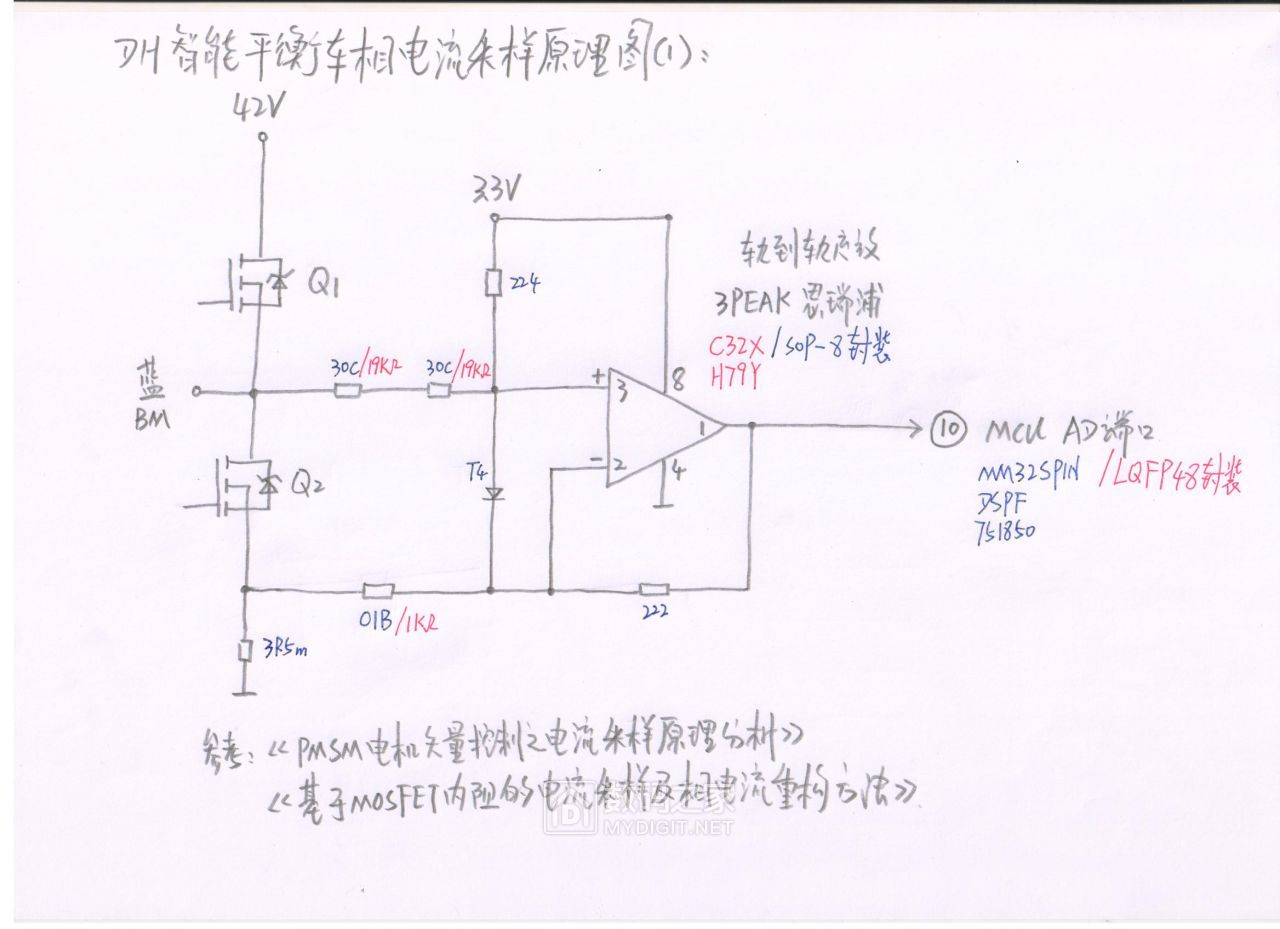 DH智能平衡车相电流采样原理图(1):
42V
3.3V
Q1
224
轨到轨运放
3PEAK 思瑞浦
C32X/SOP-8封装
H79Y
30C/19KΩ
30C/19KΩ
蓝
BM
+
3
8
1
-
2
4
T4
Q2
10 MCU AD端口
MM32SPIN /LQFP48封装
DSPF
751850
01B/1KΩ
222
3R5m
参考:《PMSM电机矢量控制之电流采样原理分析》
《基于MOSFET内阻的电流采样及相电流重构方法》
数码之家
MYDIGIT.NET